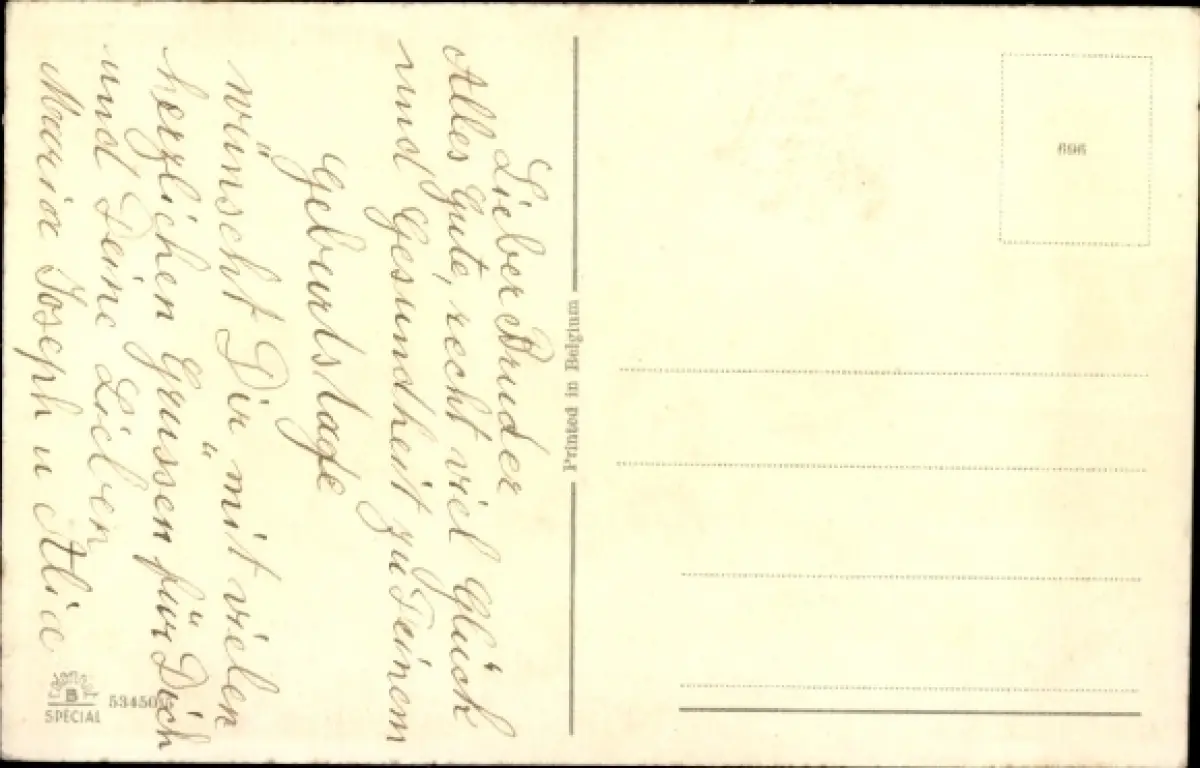 Lieber Bruder
Alles Gute, recht viel Glück
und Gesundheit zu Deinem
Geburtstage
wünscht Dir mit vielen
herzlichen Grüssen für Dich
und Deine Lieben
Maria Joseph u
Printed in Belgium
696
B
SPECIAL